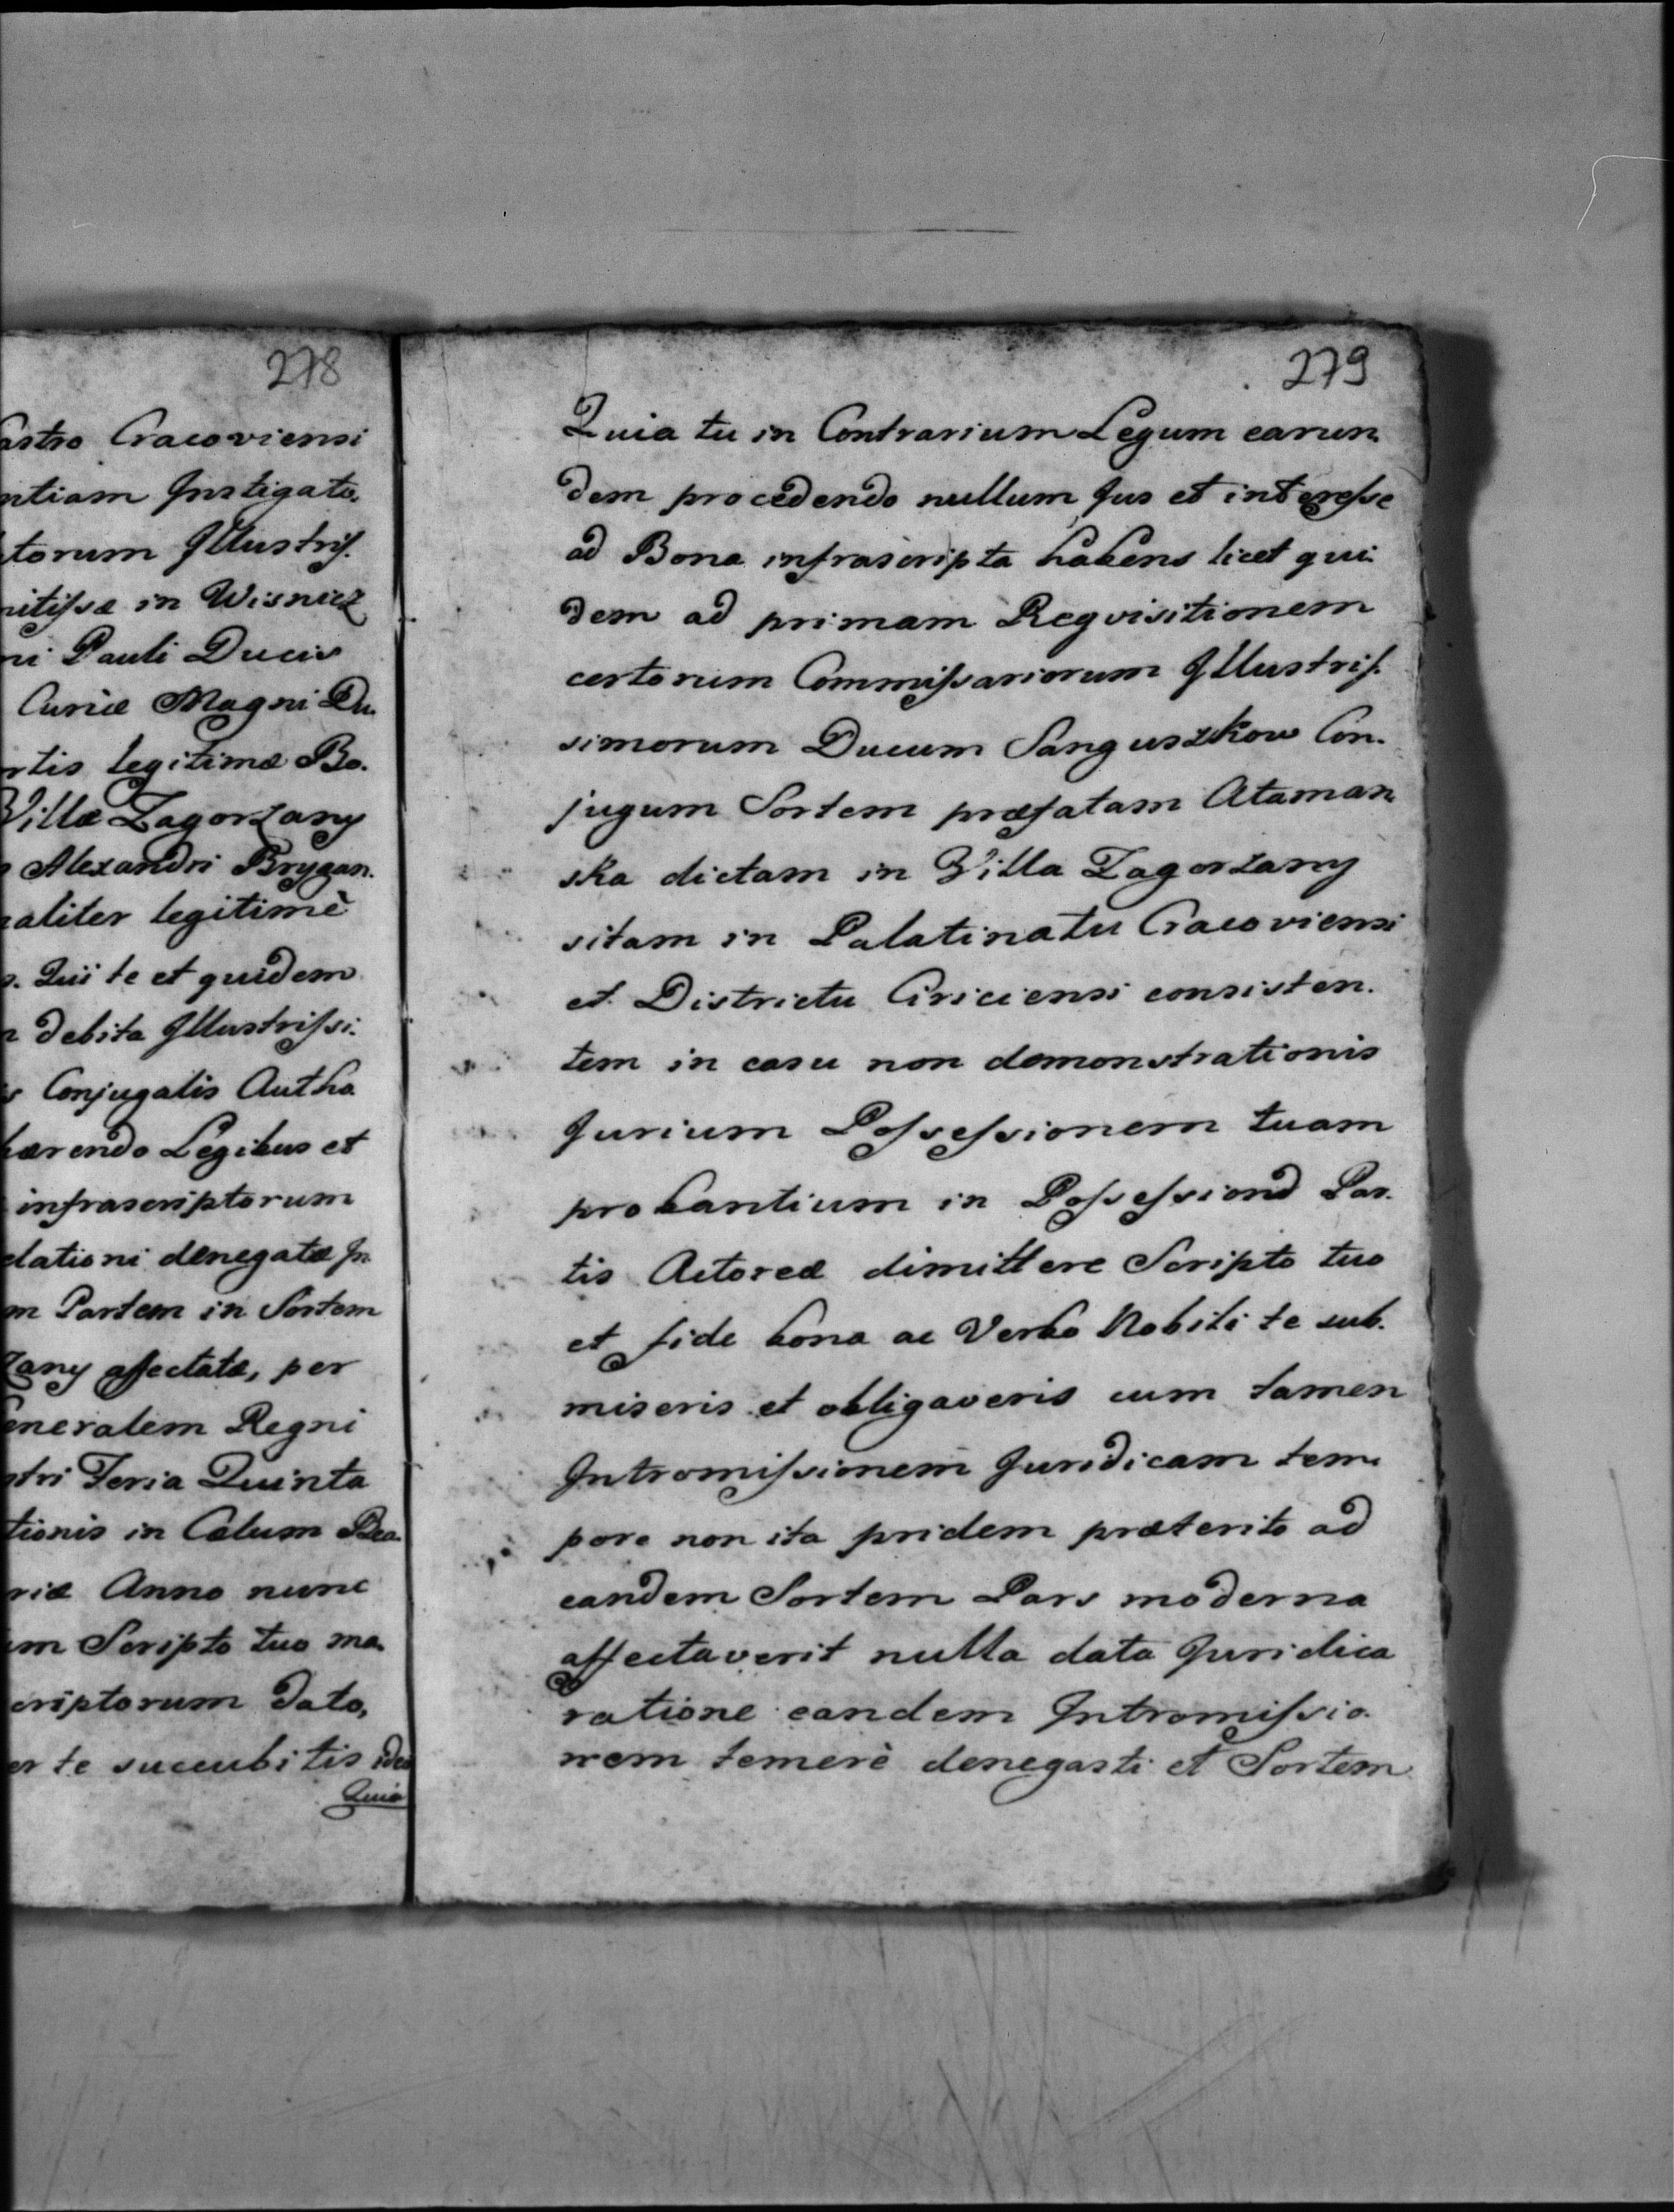 278
astro Cracoviensi
ntiam Instigato.
torum Illustris.
nitissæ in Wisnicz
ni Pauli Ducis
Curiæ Magni Du.
rtis legitimæ Bo.
Villæ Zagorzany
Alexandri Brygan.
naliter legitimè
Qui te et quidem
debita Illustrissi.
s Conjugalis Autho.
hærendo Legibus et
infrascriptorum
elationi denegatæ In.
m Partem in Sortem
zany affectatæ, per
Generalem Regni
stri Feria Quinta
tionis in Cælum Bea.
riæ Anno nunc
um Scripto tuo ma.
criptorum Dato,
er te succubitis ideo
Quia
279
Quia tu in Contrarium Legum earun.
dem procedendo nullum Jus et interesse
ad Bona infrascripta habens licet qui.
dem ad primam Reqvisitionem
certorum Commissariorum Illustris.
simorum Ducum Sanguszkow Con.
jugum Sortem præfatam Ataman.
ska dictam in Villa Zagorzany
sitam in Palatinatu Cracoviensi
et Districtu Criciensi consisten.
tem in casu non demonstrationis
Jurium Possessionem tuam
probantium in Possessionē Par.
tis Actoreæ dimittere Scripto tuo
et fide bona ac Verbo Nobili te sub.
miseris et obligaveris cum tamen
Intromissionem Juridicam tem.
pore non ita pridem præterito ad
eandem Sortem Pars moderna
affectaverit nulla data Juridica
ratione eandem Intromissio.
nem temerè denegasti et Sortem